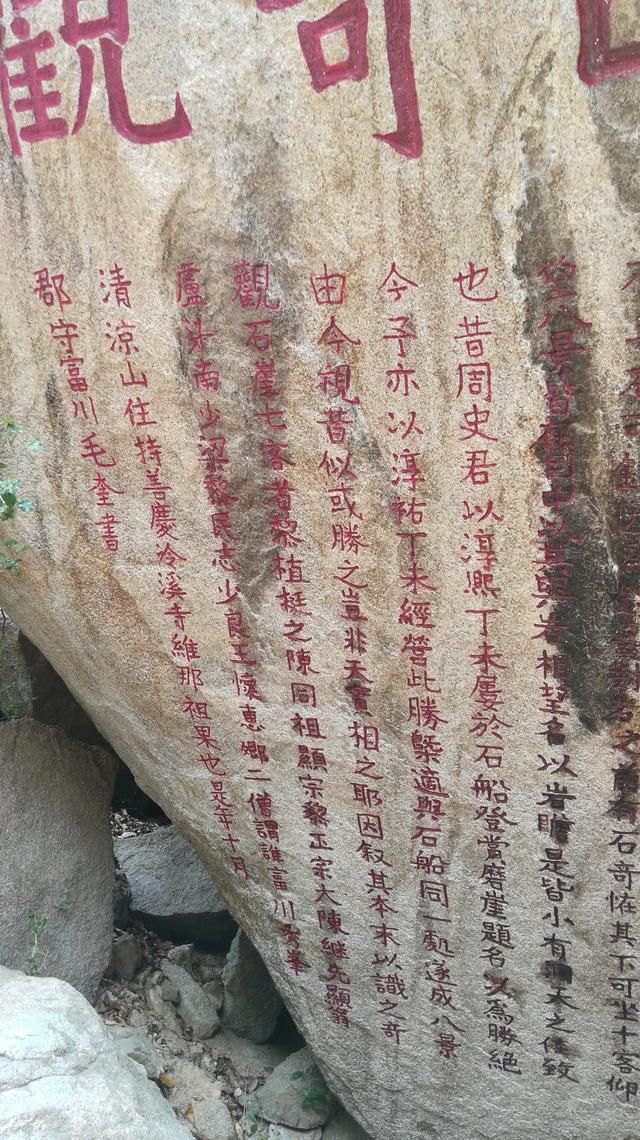 奇觀
之前有石奇恠其下可坐十客仰
八景皆在目中以其與岩相望名以岩瞻是皆小有洞天之佳致
也昔周史君以淳熙丁未屢於石船登賞磨崖題名以為勝絕
今予亦以淳祐丁未經營此勝槩適與石船同一處遂成八景
由今視昔似或勝之豈非天實相之耶因叙其本末以識之奇
觀石崖七客者黎植挺之陳同祖顯宗黎正宗大陳繼先顯翁
盧洙南少梁黎民志少良王懷惠鄉二僧謂誰富川秀峯
清涼山住持善慶冷溪寺維那祖果也是年十月
郡守富川毛奎書